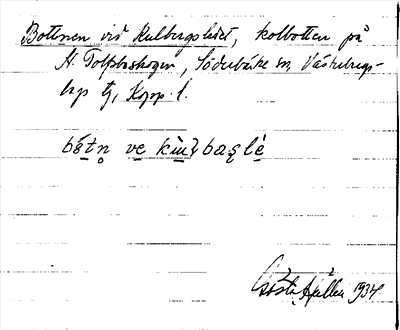 Bottnen vid Kulbergslidet, kolbotten på
N. Tolfsboskogen, Söderbärke sn, Västerbergs-
lags tg, Kopp. l.
bö́tn̥ ve kùɫbaʂlé
Gösta 1934.